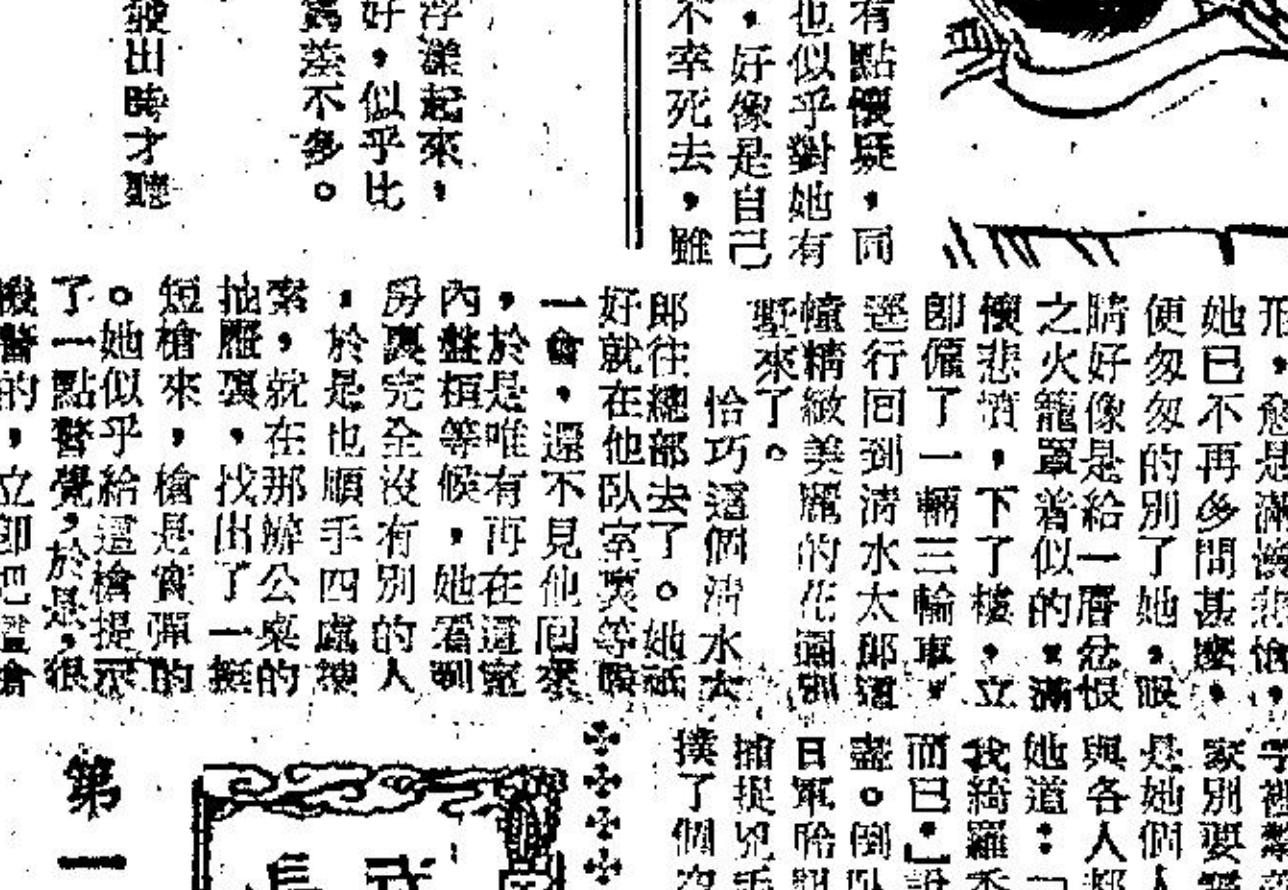 有點懷疑，同
也似乎對她有
，好像是自己
不幸死去，雖
浮漾起來，
好，似乎比
差不多。
發出時才聽
她已不再多問甚麼，
便匆匆的別了她，眼
睛好像是給一層忿恨
之火籠罩着似的，滿
懷悲憤，下了樓，立
即僱了一輛三輪車，
逕行回到清水太郎這
幢精緻美麗的花園別
墅來了。
恰巧這個清水太
郎往總部去了。她祇
好就在他臥室裏等候
一會，還不見他回來
，於是唯有再在這室
內盤桓等候，她看到
房裏完全沒有別的人
，於是也順手四處搜
索，就在那辦公桌的
抽屜裏，找出了一挺
短槍來，槍是實彈的
。她似乎給這槍提示
了一點警覺，於是，很
機警的，立即把這槍
家別要
是她個人
與各人都
她道：「
我綺羅
而已。」
盡。倒臥
日軍
捕捉兇手
撲了個
第一